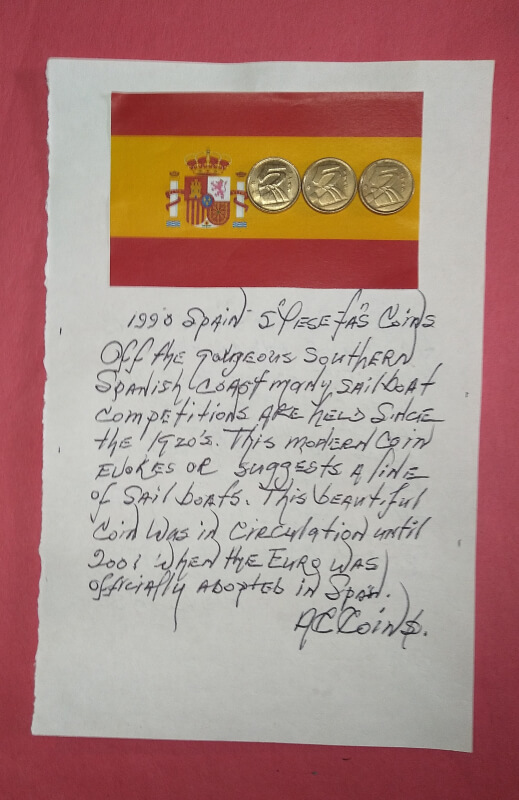 1990 Spain 5 "Pesetas" Coins
Off the gorgeous Southern
Spanish Coast many sailboat
competitions are held since
the 1920's. This modern coin
evokes or suggests a line
of sail boats. This beautiful
Coin was in circulation until
2001 when the Euro was
officially adopted in Spain.
AC Coin$.